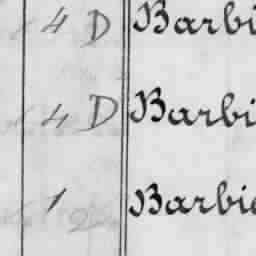 4 D Barbi
4 D Barbi
1 Barbie